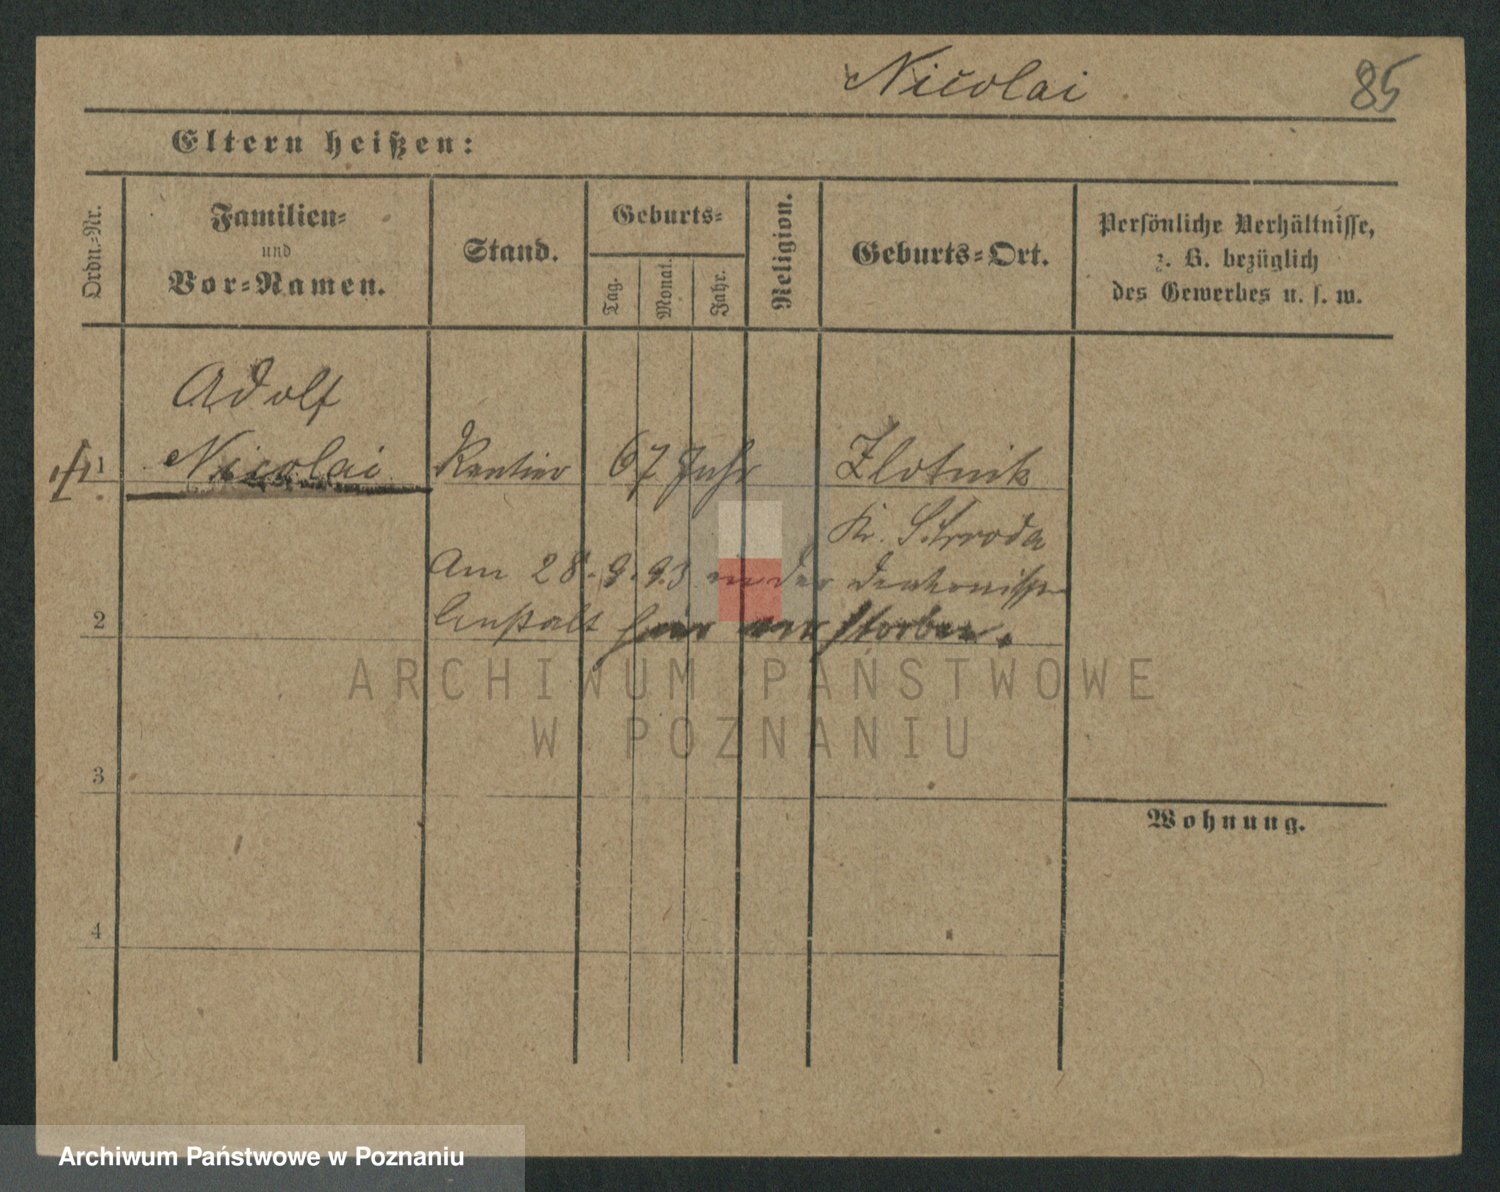 Nicolai 85
Eltern heißen:
Ordn.-Nr.
Familien-
und
Vor-Namen.
Stand.
Geburts-
Tag.
Monat.
Jahr.
Religion.
Geburts-Ort.
Persönliche Verhältnisse,
z. B. bezüglich
des Gewerbes u. s. w.
Adolf
1 Nicolai Rentier 67 Jahr Zlotnik
Kr. Schroda
Am 28.9.93 in der
2 Anstalt hier verstorben.
ARCHIWUM PAŃSTWOWE
W POZNANIU
3
Wohnung.
4
Archiwum Państwowe w Poznaniu